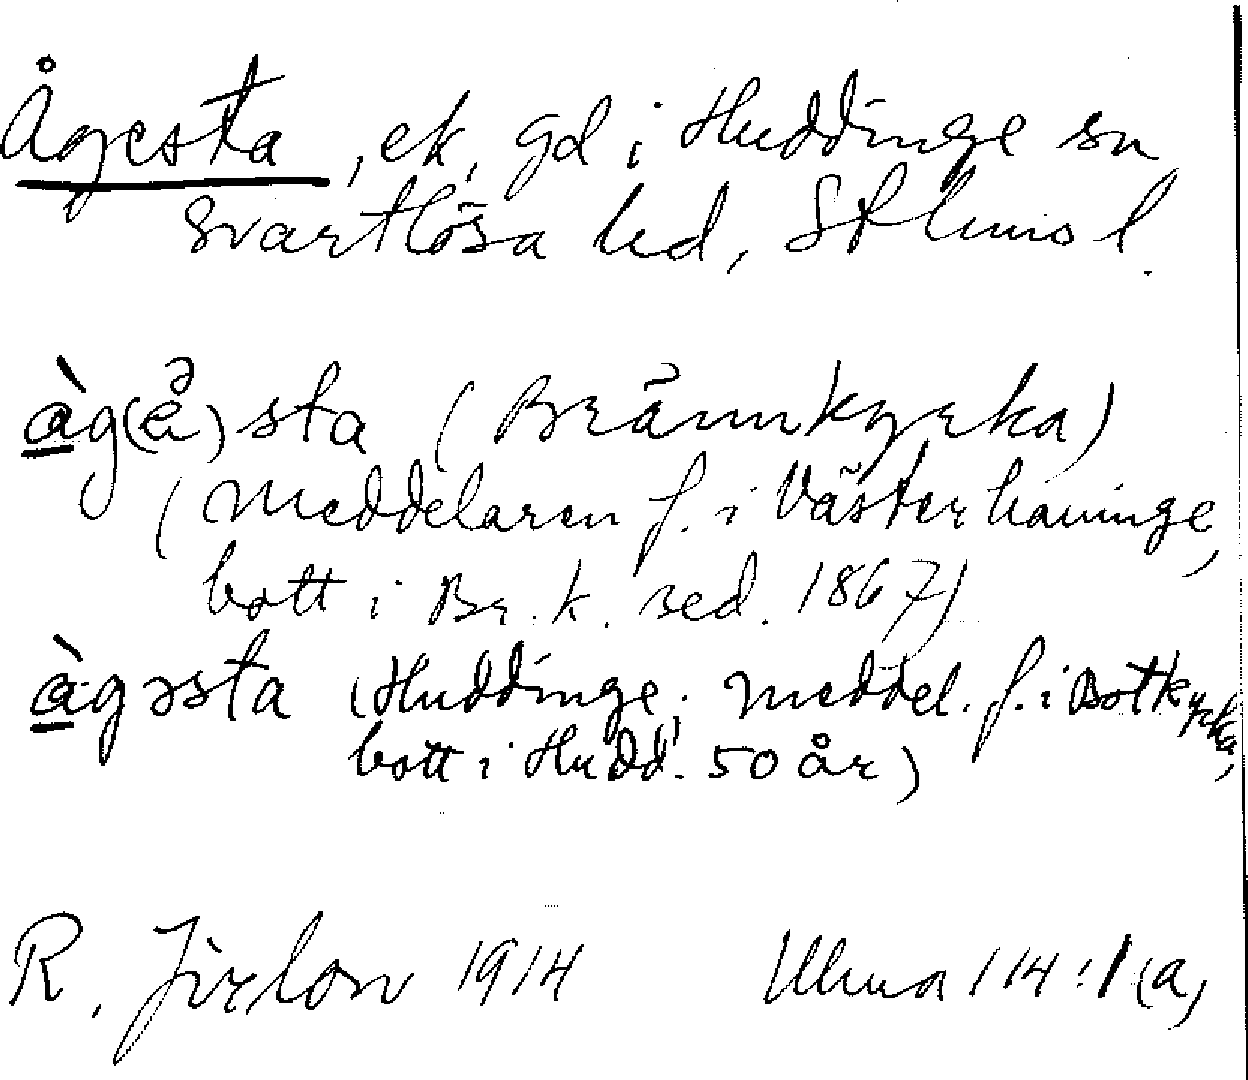 Ågesta, ek, gd i Huddinge sn
Svartlösa hd, Sthlms l.
àg(e)sta (Brännkyrka)
(Meddelaren f. i Västerhaninge,
bott i Br.k. sed. 1867)
àgəsta (Huddinge; meddel. f. i Botkyrka,
bott i Hudd. 50 år)
R. Jirlow 1914 Ulma 114:1(a)